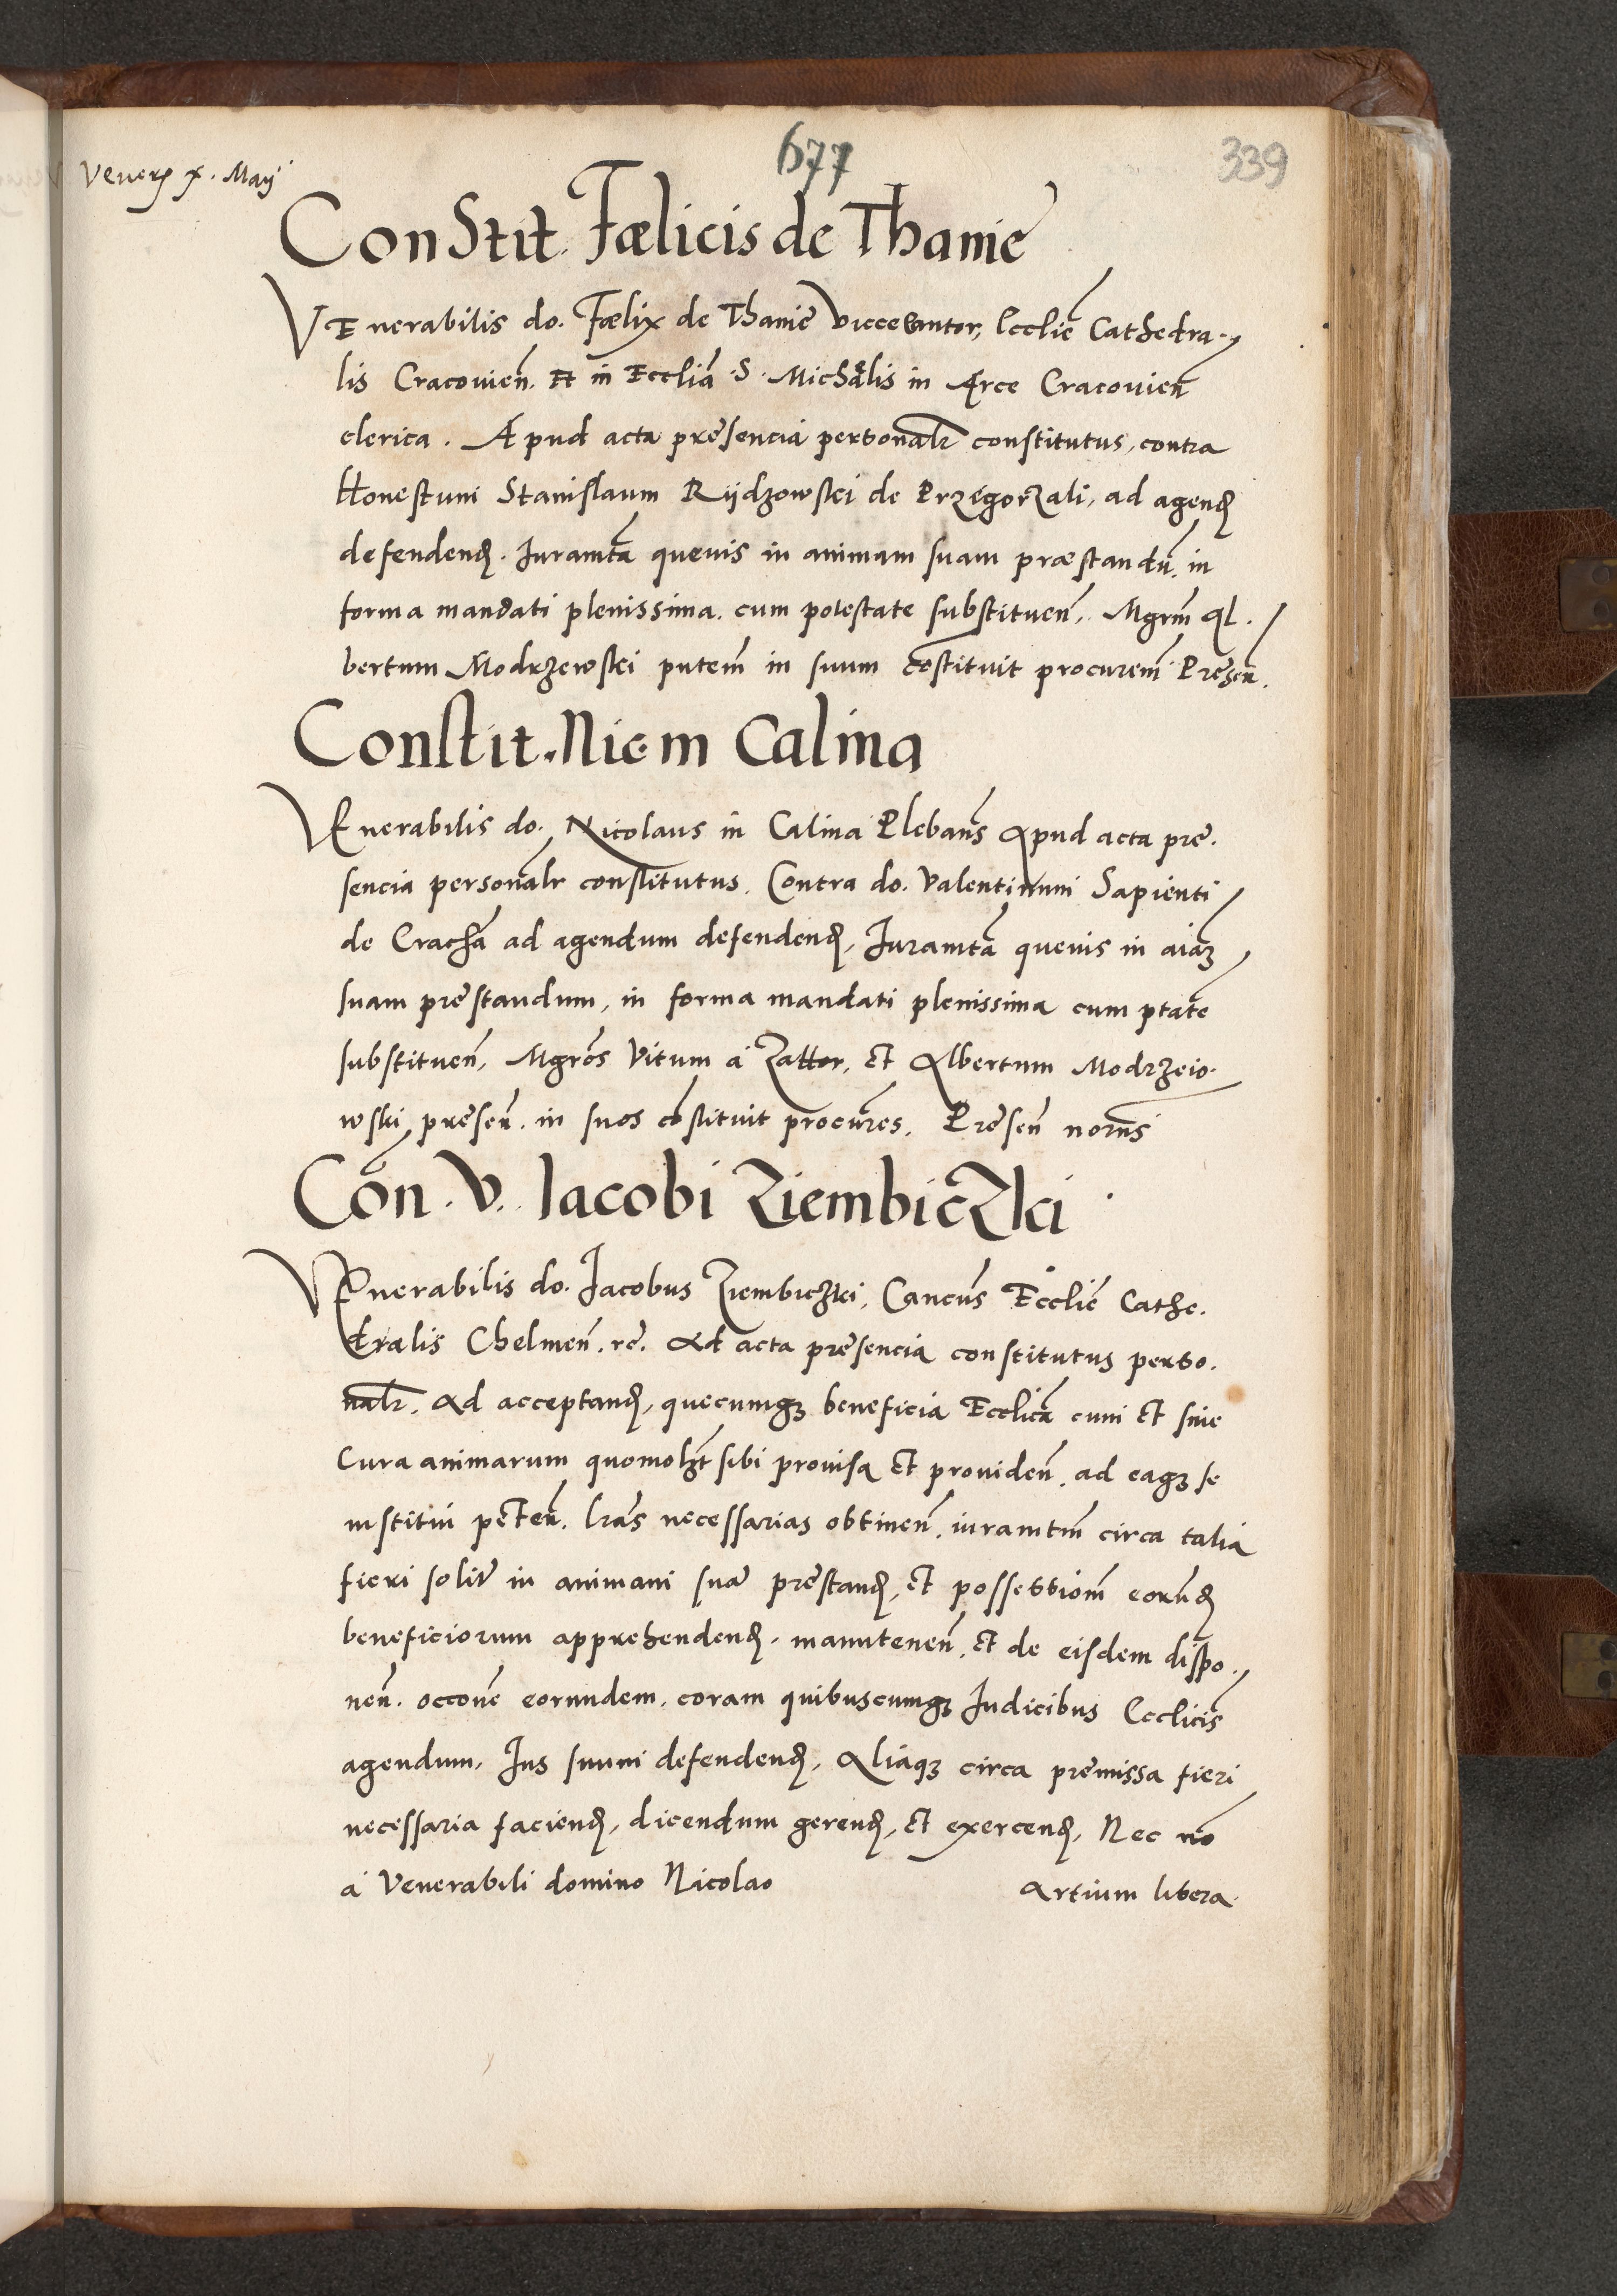 677
339
Veneris x. Maij
Constit. Fœlicis de Thanie
VEnerabilis do. Fœlix de Thanie Vicecantor, Ecclie͂ Cathedra-
lis Cracovien̄. Et in Eccliā .S. Michaelis in Arce Cracovien̄
clerica. Apud acta presencia personalr̄ constitutus, contra
Honestum Stanislaum Rijdzowski de Przegorzali, ad agend̄
defendend̄. Iuramtā quevis in animam suam præstandū. in
forma mandati plenissima. cum potestate substituen̄. Mgrm̄ Al-
bertum Modrzewski putem̄ in suum cōstituit procurem̄ Presen̄.
Constit. Nicm Calina
VEnerabilis do. Nicolaus in Calina Plebanꝰ Apud acta pre-
sencia personalr̄ constitutus. Contra do. Valentinum Sapienti
de Crachā ad agendum defendend̄, Iuramtā quevis in aiāꝫ
suam prestandum, in forma mandati plenissima cum ptāte
substituen̄, Mgrōs Vitum a Zattor, et Albertum Modrzeio-
wski presen̄. in suos cōstituit procūres. Presen̄ norūs
Cōn. V. Iacobi Ziembiczki
VEnerabilis do. Iacobus Ziembiczki, Cancūs Ecclie͂ Cathe-
dralis Chelmen̄. rc̄. Ad acta presencia constitutus perso-
nalr̄. Ad acceptand̄, quecumqꝫ beneficia Ecclicā cum et sine
Cura animarum quomolꝫt sibi provisa et providen̄. ad eaqꝫ se
institui peten̄. lrās necessarias obtinen̄. iuramtm̄ circa talia
fieri solit̄ in animam suā prestand̄, et possessionm̄ eorund̄
beneficiorum apprehendend̄. manutenen̄. et de eisdem dispo-
nen̄. occōne eorundem. coram quibuscumqꝫ Iudicibus Ecclicis̄
agendum, Ius suum defendend̄, Aliaqꝫ circa premissa fieri
necessaria faciend̄, dicendum gerend̄, et exercend̄, Nec nō
a Venerabili domino Nicolao Artium libera-